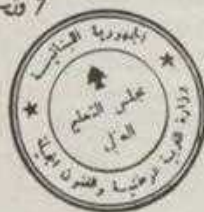 الجمهورية اللبنانية
مجلس التعليم
العالي
وزارة التربية الوطنية والفنون الجميلة